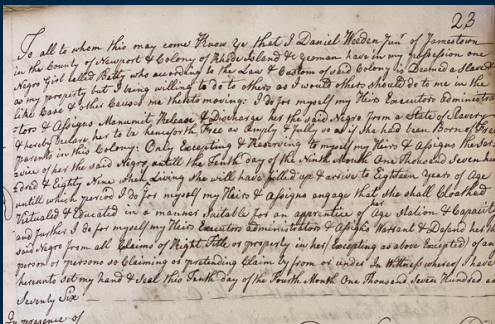 23
To all to whom this may come Know ye that I Daniel Weeden Junr. of Jamestown
in the County of Newport & Colony of Rhode Island & yeoman have in my possession one
Negro Girl called Betty who according to the Law & Custom of said Colony is Deemed a Slave &
as my property but I being willing to do to others as I would others should do to me in the
like Case & other Causes me thereto moving: I do for myself my Heirs Executors administra
tors & Assigns Manumit Release & Discharge her the said Negro from a State of Slavery
& hereby declare her to be henceforth Free as amply & fully so as if She had been Born of Free
parents in this Colony: Only Excepting & Reserving to myself my Heirs & Assigns the Ser
vice of her the said Negro untill the Tenth day of the Ninth Month One Thousand Seven hun
dred & Eighty Nine when Living she will have filled up & arrive to Eighteen Years of Age
untill which period I do for myself my Heirs & Assigns engage that She shall Cloathed
Victualed & Educated in a manner Suitable for an apprentice of her Age Station & Capacity
and further I do for myself my Heirs Executors administrators & Assigns Warrant & Defend her the
said Negro from all Claims of Right Title or property in her (Excepting as above Excepted) of any
person or persons so Claiming or pretending Claim by from or under In Witness whereof I have
hereunto set my hand & Seal this Tenth day of the Fourth Month One Thousand Seven Hundred &
Seventy Six
In presence of